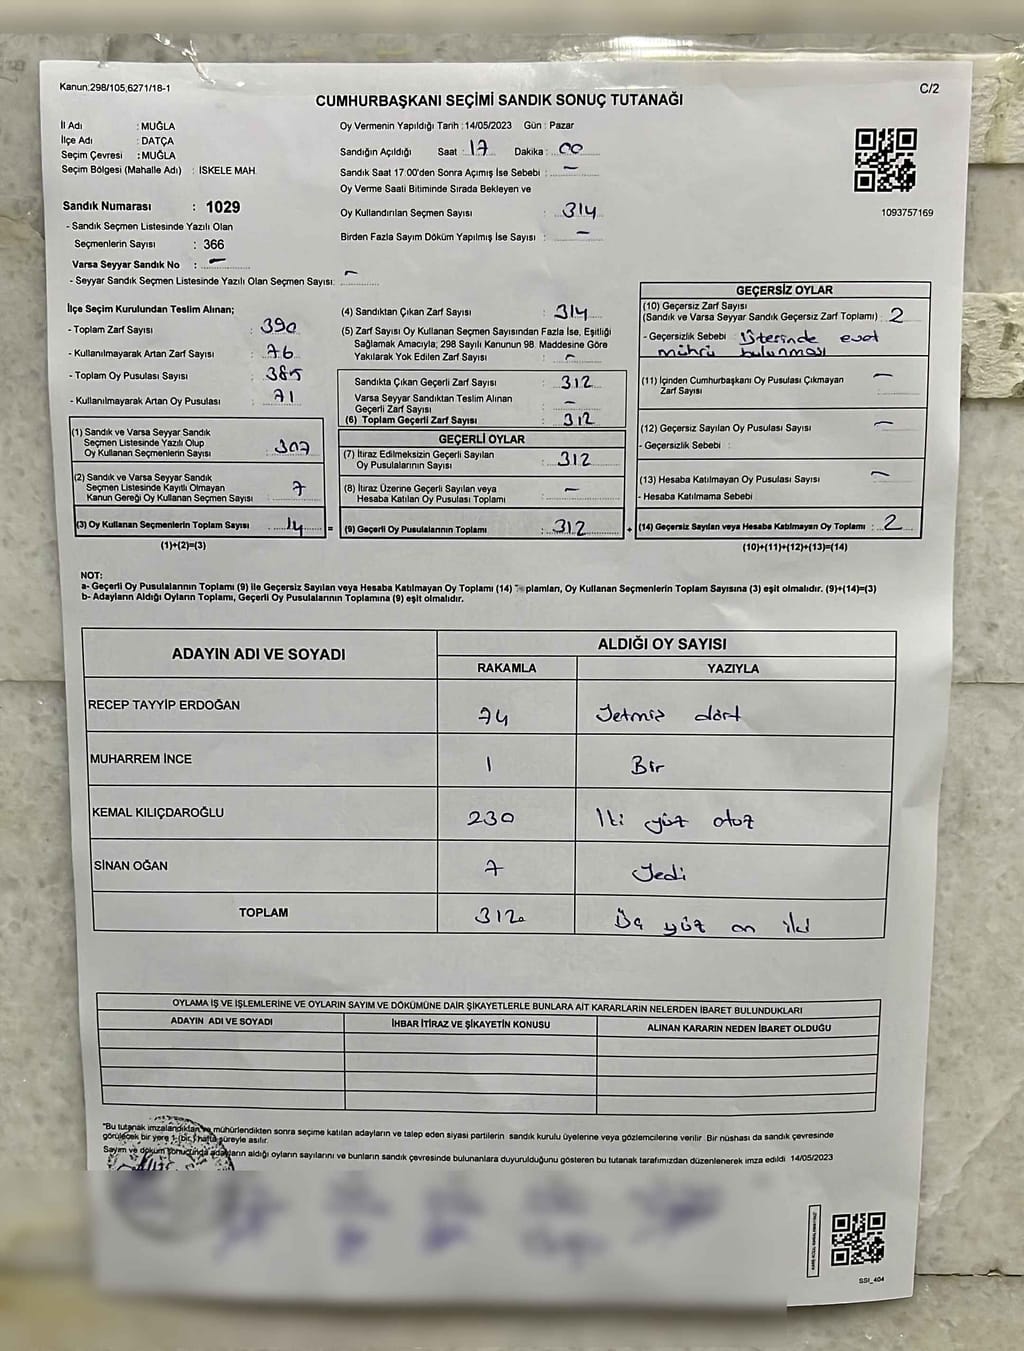 Kanun:298/105,6271/18-1
C/2
CUMHURBAŞKANI SEÇİMİ SANDIK SONUÇ TUTANAĞI
İl Adı : MUĞLA
İlçe Adı : DATÇA
Seçim Çevresi : MUĞLA
Seçim Bölgesi (Mahalle Adı) : İSKELE MAH
Sandık Numarası : 1029
- Sandık Seçmen Listesinde Yazılı Olan
Seçmenlerin Sayısı : 366
Varsa Seyyar Sandık No : -
- Seyyar Sandık Seçmen Listesinde Yazılı Olan Seçmen Sayısı: -
Oy Vermenin Yapıldığı Tarih :14/05/2023 Gün : Pazar
Sandığın Açıldığı Saat : 17 Dakika : 00
Sandık Saat 17:00'den Sonra Açımış İse Sebebi : -
Oy Verme Saati Bitiminde Sırada Bekleyen ve
Oy Kullandırılan Seçmen Sayısı : 314
Birden Fazla Sayım Döküm Yapılmış İse Sayısı : -
1093757169
İlçe Seçim Kurulundan Teslim Alınan;
- Toplam Zarf Sayısı : 390
- Kullanılmayarak Artan Zarf Sayısı : 76
- Toplam Oy Pusulası Sayısı : 385
- Kullanılmayarak Artan Oy Pusulası : 71
(1) Sandık ve Varsa Seyyar Sandık
Seçmen Listesinde Yazılı Olup
Oy Kullanan Seçmenlerin Sayısı : 307
(2) Sandık ve Varsa Seyyar Sandık
Seçmen Listesinde Kayıtlı Olmayan
Kanun Gereği Oy Kullanan Seçmen Sayısı : 7
(3) Oy Kullanan Seçmenlerin Toplam Sayısı : 14 =
(1)+(2)=(3)
(4) Sandıktan Çıkan Zarf Sayısı : 314
(5) Zarf Sayısı Oy Kullanan Seçmen Sayısından Fazla İse, Eşitliği
Sağlamak Amacıyla; 298 Sayılı Kanunun 98. Maddesine Göre
Yakılarak Yok Edilen Zarf Sayısı : -
Sandıkta Çıkan Geçerli Zarf Sayısı : 312
Varsa Seyyar Sandıktan Teslim Alınan
Geçerli Zarf Sayısı : -
(6) Toplam Geçerli Zarf Sayısı : 312
GEÇERLİ OYLAR
(7) İtiraz Edilmeksizin Geçerli Sayılan
Oy Pusulalarının Sayısı : 312
(8) İtiraz Üzerine Geçerli Sayılan veya
Hesaba Katılan Oy Pusulası Toplamı : -
(9) Geçerli Oy Pusulalarının Toplamı : 312 +
GEÇERSİZ OYLAR
(10) Geçersiz Zarf Sayısı
(Sandık ve Varsa Seyyar Sandık Geçersiz Zarf Toplamı) : 2
- Geçersizlik Sebebi : Üsterinde evat
mührü bulunması
(11) İçinden Cumhurbaşkanı Oy Pusulası Çıkmayan
Zarf Sayısı : -
(12) Geçersiz Sayılan Oy Pusulası Sayısı : -
- Geçersizlik Sebebi :
(13) Hesaba Katılmayan Oy Pusulası Sayısı : -
- Hesaba Katılmama Sebebi
(14) Geçersiz Sayılan veya Hesaba Katılmayan Oy Toplamı : 2
(10)+(11)+(12)+(13)=(14)
NOT:
a- Geçerli Oy Pusulalarının Toplamı (9) ile Geçersiz Sayılan veya Hesaba Katılmayan Oy Toplamı (14) Toplamları, Oy Kullanan Seçmenlerin Toplam Sayısına (3) eşit olmalıdır. (9)+(14)=(3)
b- Adayların Aldığı Oyların Toplamı, Geçerli Oy Pusulalarının Toplamına (9) eşit olmalıdır.
ADAYIN ADI VE SOYADI
ALDIĞI OY SAYISI
RAKAMLA YAZIYLA
RECEP TAYYİP ERDOĞAN 74 Yetmiş dört
MUHARREM İNCE 1 Bir
KEMAL KILIÇDAROĞLU 230 İki yüz otuz
SİNAN OĞAN 7 Yedi
TOPLAM 312 Üç yüz on iki
OYLAMA İŞ VE İŞLEMLERİNE VE OYLARIN SAYIM VE DÖKÜMÜNE DAİR ŞİKAYETLERLE BUNLARA AİT KARARLARIN NELERDEN İBARET BULUNDUKLARI
ADAYIN ADI VE SOYADI İHBAR İTİRAZ VE ŞİKAYETİN KONUSU ALINAN KARARIN NEDEN İBARET OLDUĞU
"Bu tutanak imzalandıktan ve mühürlendikten sonra seçime katılan adayların ve talep eden siyasi partilerin sandık kurulu üyelerine veya gözlemcilerine verilir. Bir nüshası da sandık çevresinde
görülecek bir yere 1 (bir) hafta süreyle asılır.
Sayım ve döküm sonucunda adayların aldığı oyların sayılarını ve bunların sandık çevresinde bulunanlara duyurulduğunu gösteren bu tutanak tarafımızdan düzenlenerek imza edildi. 14/05/2023
SSI_404